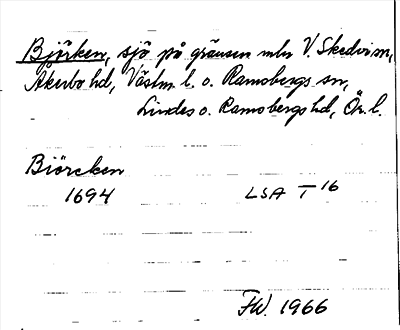 Björken, sjö på gränsen mln V. Skedvi sn,
Åkerbo hd, Västm. l. o. Ramsbergs sn,
Lindes o. Ramsbergs hd, Ör. l.
Biörcken
1694 LSA T 16
FW. 1966